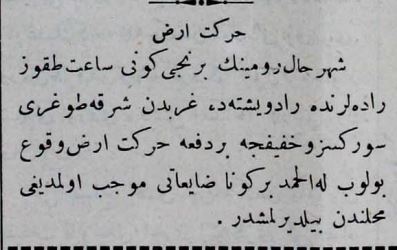 حركت ارض
شهر حال رومينك برنجى كونى ساعت طقوز
راده لرنده رادويشته ده، غربدن شرقه طوغرى
سوركسز و خفيفجه بر دفعه حركت ارض وقوع
بولوب له الحمد بر كونا ضايعاتى موجب اولمديغى
محلندن بيلديرلمشدر .